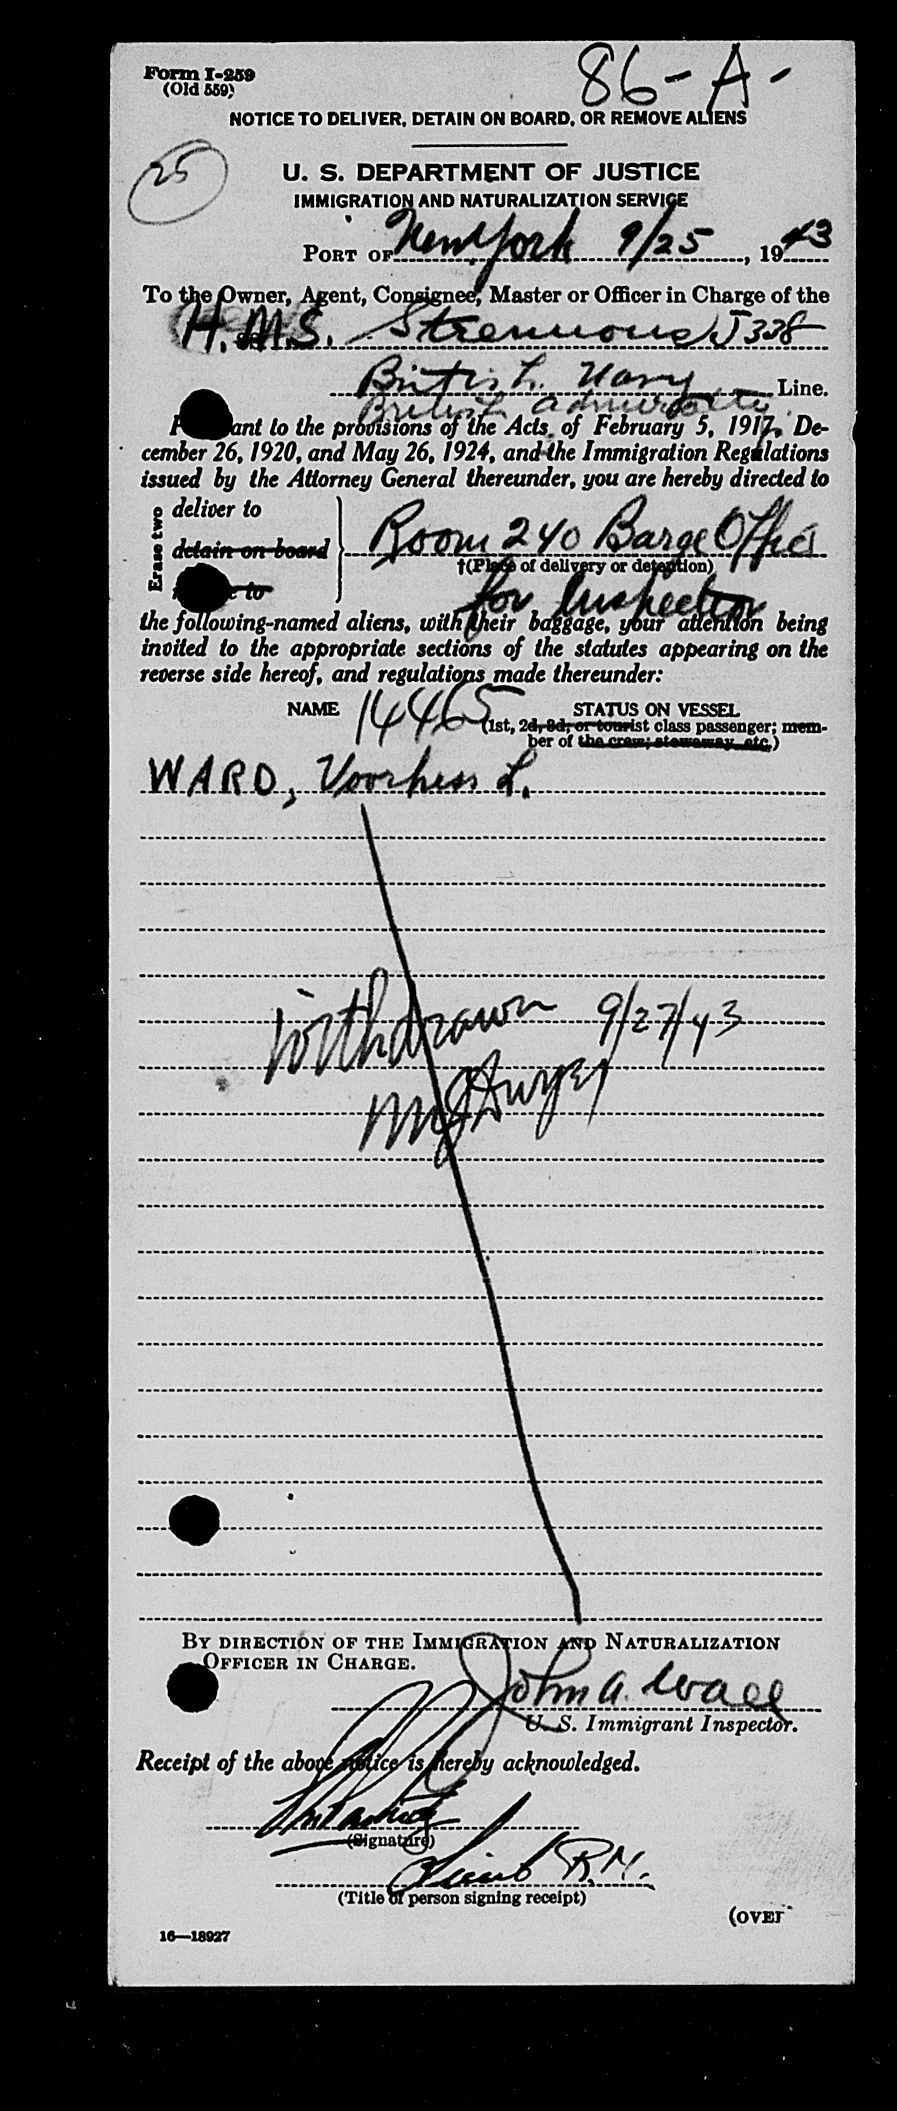 Form I-259
(Old 559)
86-A-
NOTICE TO DELIVER, DETAIN ON BOARD, OR REMOVE ALIENS
25
U. S. DEPARTMENT OF JUSTICE
IMMIGRATION AND NATURALIZATION SERVICE
PORT OF New York 9/25, 1943
To the Owner, Agent, Consignee, Master or Officer in Charge of the
H.M.S. Strenuous J338
British Navy Line.
British Admiralty
ant to the provisions of the Acts of February 5, 1917, De-
cember 26, 1920, and May 26, 1924, and the Immigration Regulations
issued by the Attorney General thereunder, you are hereby directed to
Erase two
deliver to
detain on board
to
Room 240 Barge Office
†(Place of delivery or detention)
for Inspection
the following-named aliens, with their baggage, your attention being
invited to the appropriate sections of the statutes appearing on the
reverse side hereof, and regulations made thereunder:
NAME 14465 STATUS ON VESSEL
(1st, 2d, 3d, or tourist class passenger; mem-
ber of the crew; stowaway, etc.)
WARD, Voorhess L.
Withdrawn 9/27/43
BY DIRECTION OF THE IMMIGRATION AND NATURALIZATION
OFFICER IN CHARGE.
John A. Wall
U. S. Immigrant Inspector.
Receipt of the above notice is hereby acknowledged.
(Signature)
Lieut R.N.
(Title of person signing receipt)
(OVER
16—18927